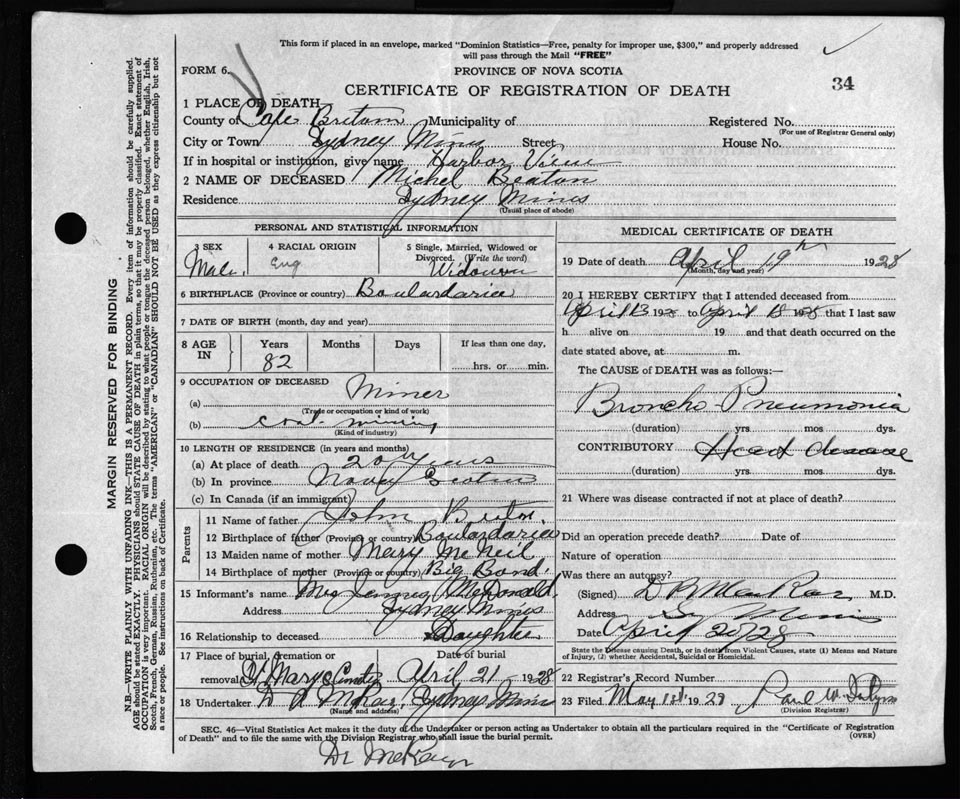 This form if placed in an envelope, marked "Dominion Statistics—Free, penalty for improper use, $300," and properly addressed
will pass through the Mail "FREE"
FORM 6.
PROVINCE OF NOVA SCOTIA
CERTIFICATE OF REGISTRATION OF DEATH
34
MARGIN RESERVED FOR BINDING
N.B.—WRITE PLAINLY WITH UNFADING INK—THIS IS A PERMANENT RECORD. Every item of information should be carefully supplied.
AGE should be stated EXACTLY. PHYSICIANS should STATE CAUSE OF DEATH in plain terms, so that it may be properly classified. Exact statement of
OCCUPATION is very important. RACIAL ORIGIN will be described by stating to what people or tongue the deceased person belonged, whether English, Irish,
Scotch, French, German, Russian, Ruthenian, etc. The terms "AMERICAN" or "CANADIAN" SHOULD NOT BE USED as they express citizenship but not
a race or people. See instructions on back of Certificate.
1 PLACE OF DEATH
County of Cape Breton Municipality of
Registered No.
(For use of Registrar General only)
City or Town Sydney Mines Street
House No.
If in hospital or institution, give name Harbor View
2 NAME OF DECEASED Michel Beaton
Residence Sydney Mines
(Usual place of abode)
PERSONAL AND STATISTICAL INFORMATION
3 SEX
Male
4 RACIAL ORIGIN
Eng
5 Single, Married, Widowed or
Divorced. (Write the word)
Widower
6 BIRTHPLACE (Province or country) Boulardarie
7 DATE OF BIRTH (month, day and year)
8 AGE IN
Years Months Days If less than one day,
82
hrs. or min.
9 OCCUPATION OF DECEASED
(a) Miner
(Trade or occupation or kind of work)
(b) coal mining
(Kind of industry)
10 LENGTH OF RESIDENCE (in years and months)
(a) At place of death 20 Years
(b) In province
(c) In Canada (if an immigrant)
Parents
11 Name of father John
12 Birthplace of father (Province or country) Boulardarie
13 Maiden name of mother Mary McNeil
14 Birthplace of mother (Province or country) Big Bond.
15 Informant's name Mrs McDonald
Address Sydney Mines
16 Relationship to deceased Daughter
17 Place of burial, cremation or
removal St Marys
Date of burial
April 21 1928
18 Undertaker Sydney Mines
(Name and address)
MEDICAL CERTIFICATE OF DEATH
19 Date of death April 19th 1928
(Month, day and year)
20 I HEREBY CERTIFY that I attended deceased from
April 13 1928 to April 18 1928 that I last saw
h alive on 19 and that death occurred on the
date stated above, at m.
The CAUSE of DEATH was as follows:—
Broncho Pneumonia
(duration) yrs. mos dys.
CONTRIBUTORY Heart disease
(duration) yrs. mos. dys.
21 Where was disease contracted if not at place of death?
Did an operation precede death? Date of
Nature of operation
Was there an autopsy?
(Signed) M.D.
Address Sy Mines
Date April 20/28
State the Disease causing Death, or in death from Violent Causes, state (1) Means and Nature
of Injury, (2) whether Accidental, Suicidal or Homicidal.
22 Registrar's Record Number
23 Filed May 1928 Paul W.
(Division Registrar)
SEC. 46—Vital Statistics Act makes it the duty of the Undertaker or person acting as Undertaker to obtain all the particulars required in the "Certificate of Registration
of Death" and to file the same with the Division Registrar who shall issue the burial permit.
(OVER)
Dr McKay